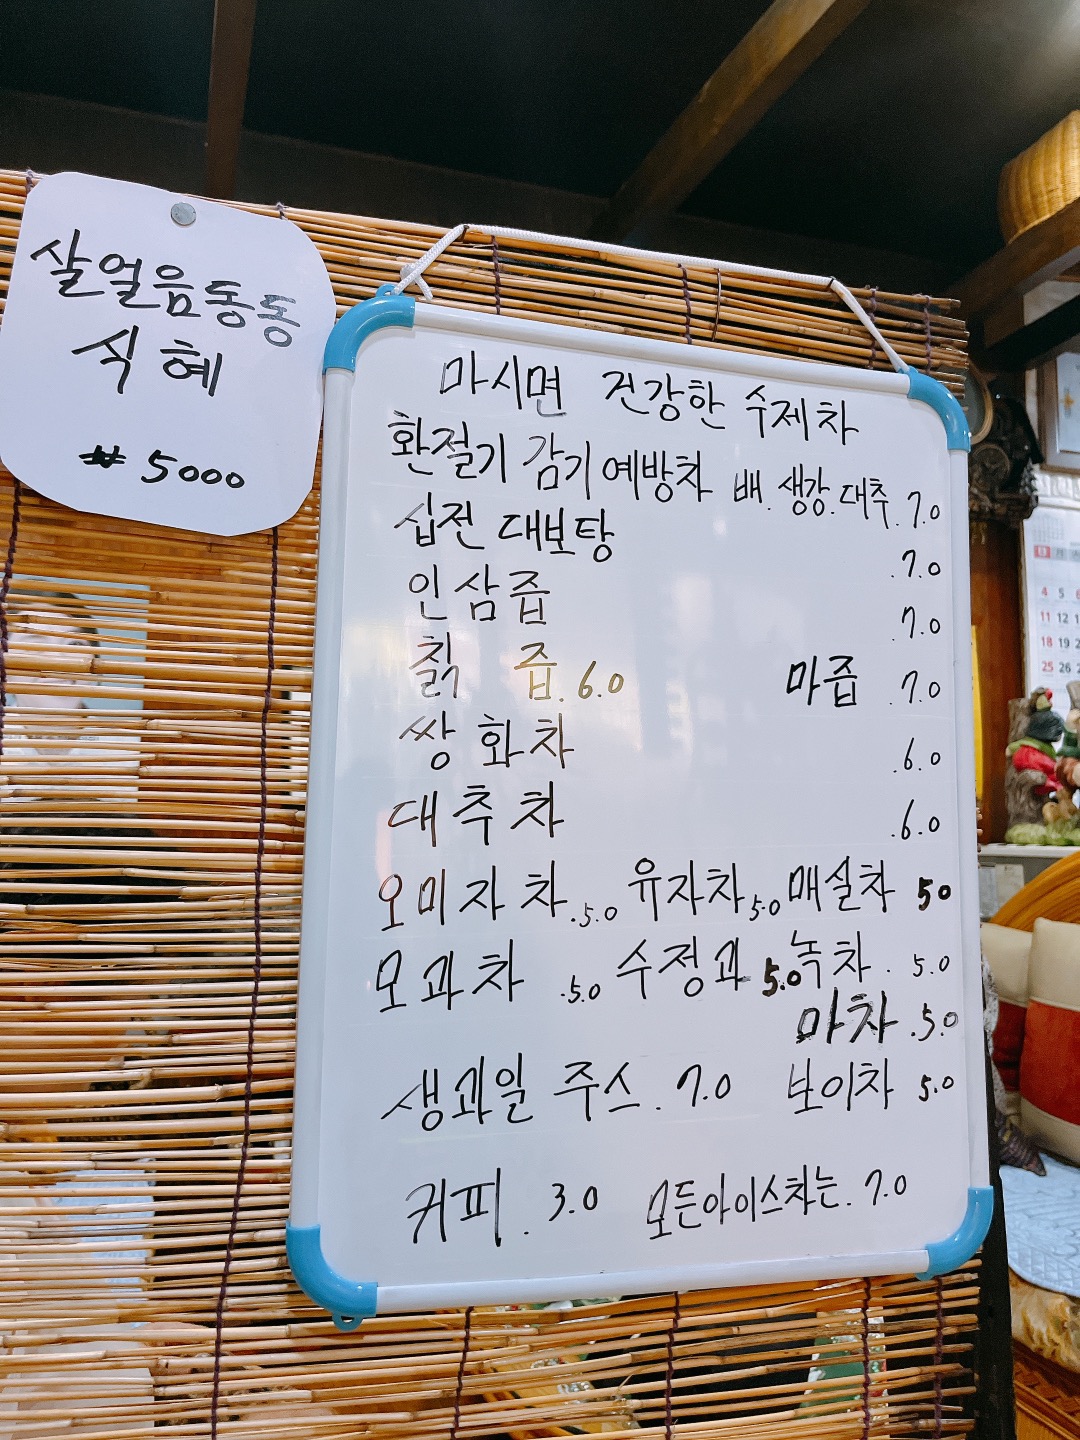 살얼음동동
식혜
₩ 5000
마시면 건강한 수제차
환절기 감기예방차 배. 생강. 대추. 7.0
십전 대보탕 .7.0
인삼즙 .7.0
칡 즙. 6.0 마즙 .7.0
쌍화차 .6.0
대추차 .6.0
오미자차. .5.0 유자차 5.0 매실차 50
모과차 .5.0 수정과 5.0 녹차. 5.0
마차 .5.0
생과일 주스. 7.0 보이차 5.0
커피. 3.0 모든아이스차는. 7.0
4 5
11 12
18 19
25 26